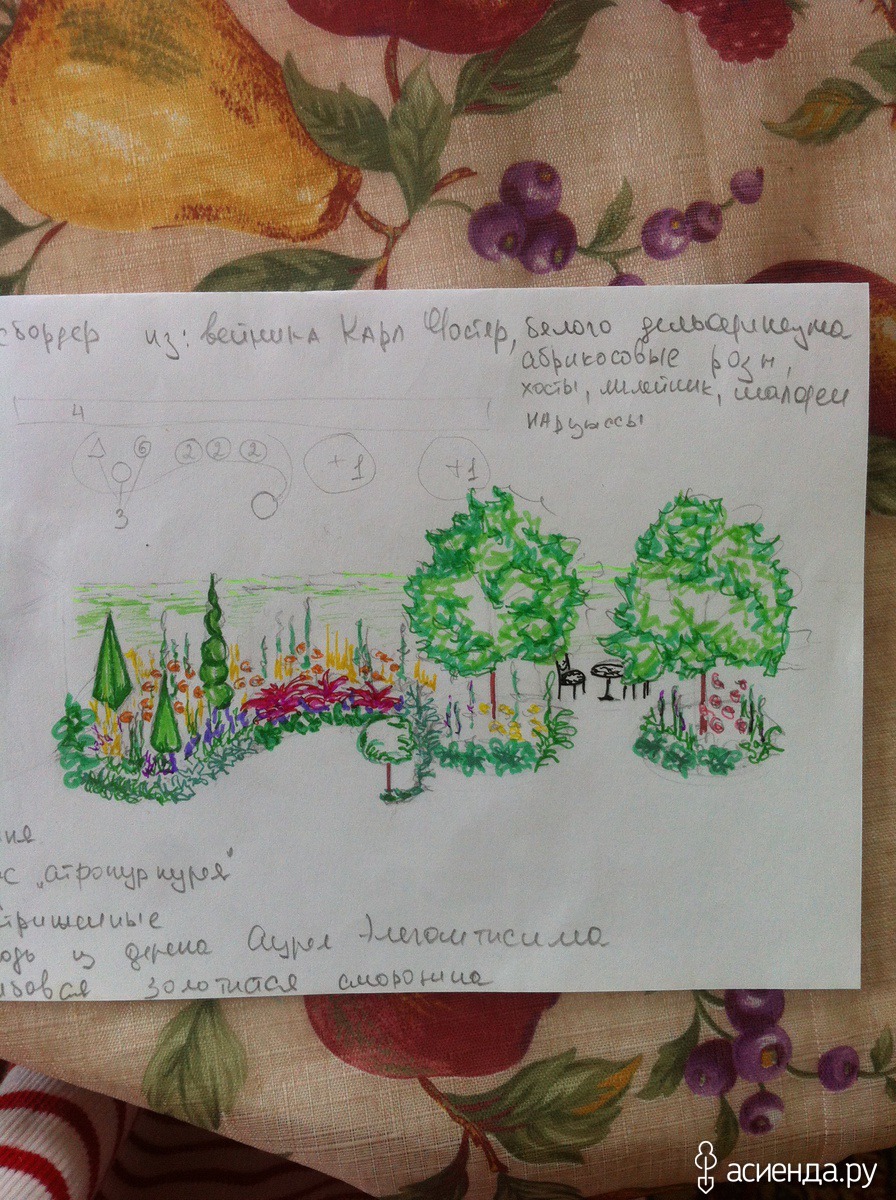 сбордер из: вейника Карл Фостер, белого дельфиниума
абрикосовые розы,
хосты, лилейник, шалфей
нарцыссы
4
6 2 2 2 +1 +1
3
ния
с „атропурпурея"
стришенные
из дерена Ауреа Элегантисима
золотистая смородина
асиенда.ру